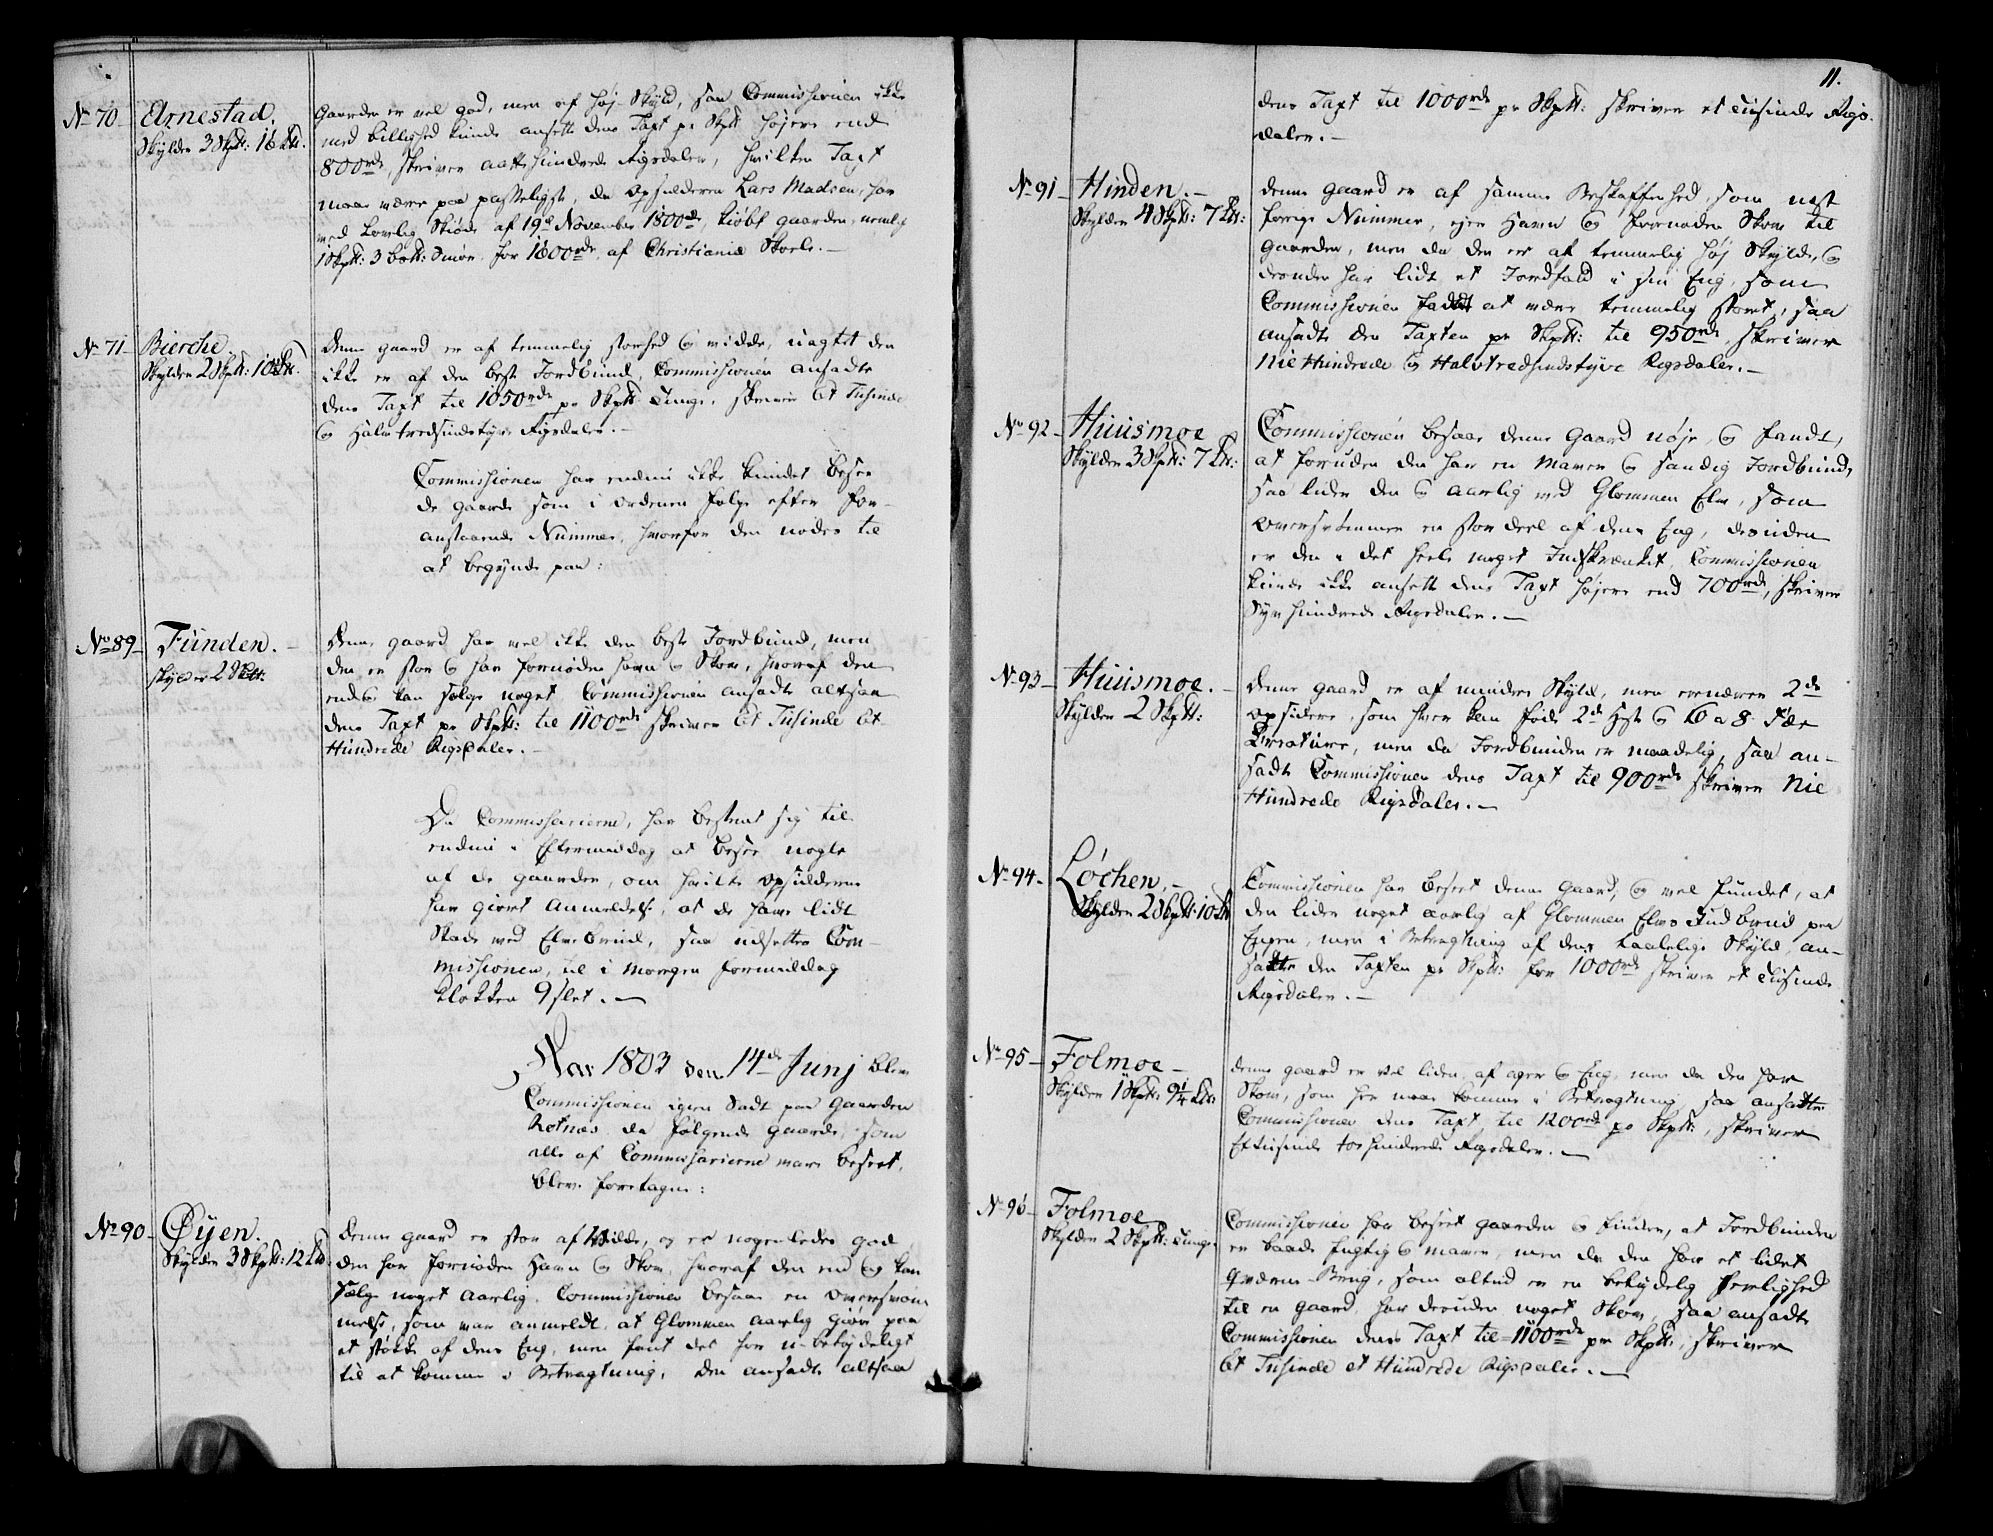 No 70 Arnestad.
Skylder 3 Skptt: 16 Ltt.
Gaarden er vel god, men af høj Skyld, saa Commissionen ikke
med billighed kunde ansætt dens Taxt pr Skptt højere end
800rd, skriver aattehundrede Rigsdaler, hvilken Taxt
maae være paa passeligst, da Opsidderen Lars Madsen, har
ved Lovlig Skiøde af 19de November 1800de, kiøbt gaarden, nemlig
1 Skptt: 3 Smør for 1800rd, af Christiania Skoele.
No 71 Bierche.
Skylder 2 Skptt: 10 Ltt.
Denne gaard er af temmelig storhed og vidde, uagtet den
ikke er af den beste Jordbund, Commissionen ansadte
dens Taxt til 1050rd pr Skptt Tunge, skriver Et Tusinde
og Halvtredsindstyve Rigsdaler.
Commissionen har endnu ikke kundet besee
de gaarde som i ordenen følge efter for-
anstaaende Nummer, hvorfor den nødes til
at begynde paa:
No 89 Funden.
skylder 2 Skptt:
Denne gaard har vel ikke den beste Jordbund, men
den er stor og har fornøden havn og Skov, hvoraf den
endog kan sælge noget, Commissionen ansadte altsaa
dens Taxt pr Skptt: til 1100rd skriver Et Tusinde Et
Hundrede Rigsdaler.
Da Commissarierne, har bestemt sig til
endnu i Eftermiddag at besee nogle
af de gaarder, om hvilke opsidderne
har giort Anmeldelse, at de have lidt
Skade ved Elvebrud, saa udsettes Com-
missionen, til i morgen formiddag
klokken 9 slet.
Aar 1803 den 14de Junj blev
Commissionen igien Sadt paa Gaarden
Rotnæs, da følgende gaarde, som
alle af Commissarierne vare beseet,
blev foretagne:
No 90 Øyen.
Skylder 3 Skptt: 12 Ltt.
Denne gaard er stor af Vidde, og er nogenledes god
den har fornøden Havn og Skov, hvoraf den end og kan
sælge noget aarlig. Commissionen besaae en oversvøm
melse, som var anmeldt, at Glommen aarlig giør paa
et støkke af dens Eng, men fant det for u-betydeligt
til at komme i Betragtning, den ansadte altsaa
11.
dens Taxt til 1000rd pr Skptt: skriver et tusinde Rigs-
daler.
No 91 Hinden.
Skylder 4 Skptt: 7 Ltt:
denne gaard er af samme Beskaffenhed, som næst
forrige Nummer, ejer Havn og fornøden Skov til
gaarden, men da den er af temmelig høj Skyld, og
desuden har lidt et Jordfald i sin Eng, som
Commissionen fandt at være temmelig stort, saa
ansadte den Taxten pr Skptt: til 950rd, skriver
Nie Hundrede og Halvtredsindstyve Rigsdaler.
No 92 Huusmoe
Skylder 3 Skptt: 7 Ltt:
Commissionen besaae denne Gaard nøje, og fandt,
at foruden den har en Maver og sandig Jordbund,
saa lider den og aarlig ved Glommen Elv, som
oversvømmer en stor deel af dens Eng, desuden
er den i det heele meget Indskrænket, Commissionen
kunde ikke ansætt dens Taxt højere end 700rd, skriver
Syv hundrede Rigsdaler.
No 93 Huusmoe.
Skylder 2 Skptt:
Denne gaard er af mindre Skyld, men ernærer 2de
opsidere, som hver kan føde 2de Heste og 6 a 8 Fæe
Creature, men da Jordbunden er maadelig, saa an-
sadte Commissionen dens Taxt til 900rd skriver Nie
Hundrede Rigsdaler.
No 94 Løchen.
Skylder 2 Skptt: 10 Ltt
Commissionen har beseet denne Gaard, og vel fundet, at
den lider noget aarlig af Glommen Elvs Indbrud paa
Engen, men i Betragtning af dens taalelige Skyld, an-
sadte den Taxten pr Skptt: for 1000rd skriver et tusinde
Rigsdaler.
No 95 Folmoe
Skylder 1 Skptt: 9 1/4 Ltt.
denne gaard er vel liden, af ager og Eng, men da den har
Skov, som her maae komme i Betragtning, saa ansadte
Commissionen dens Taxt, til 1200rd pr Skptt:, skriver
Ettusinde tvehundrede Rigsdaler.
No 96 Folmoe
Skylder 2 Skptt: Tunge.
Commissionen har beseet gaarden og finder, at Jordbunden
er baade fugtig og maver, men da den har et lidet
Qværne-Brug, som altid er en betydelig herlighed
til en gaard, har desuden noget Skov, saa ansadte
Commissionen dens Taxt til 1100rd pr Skptt:, skriver
Et Tusinde et Hundrede Rigsdaler.